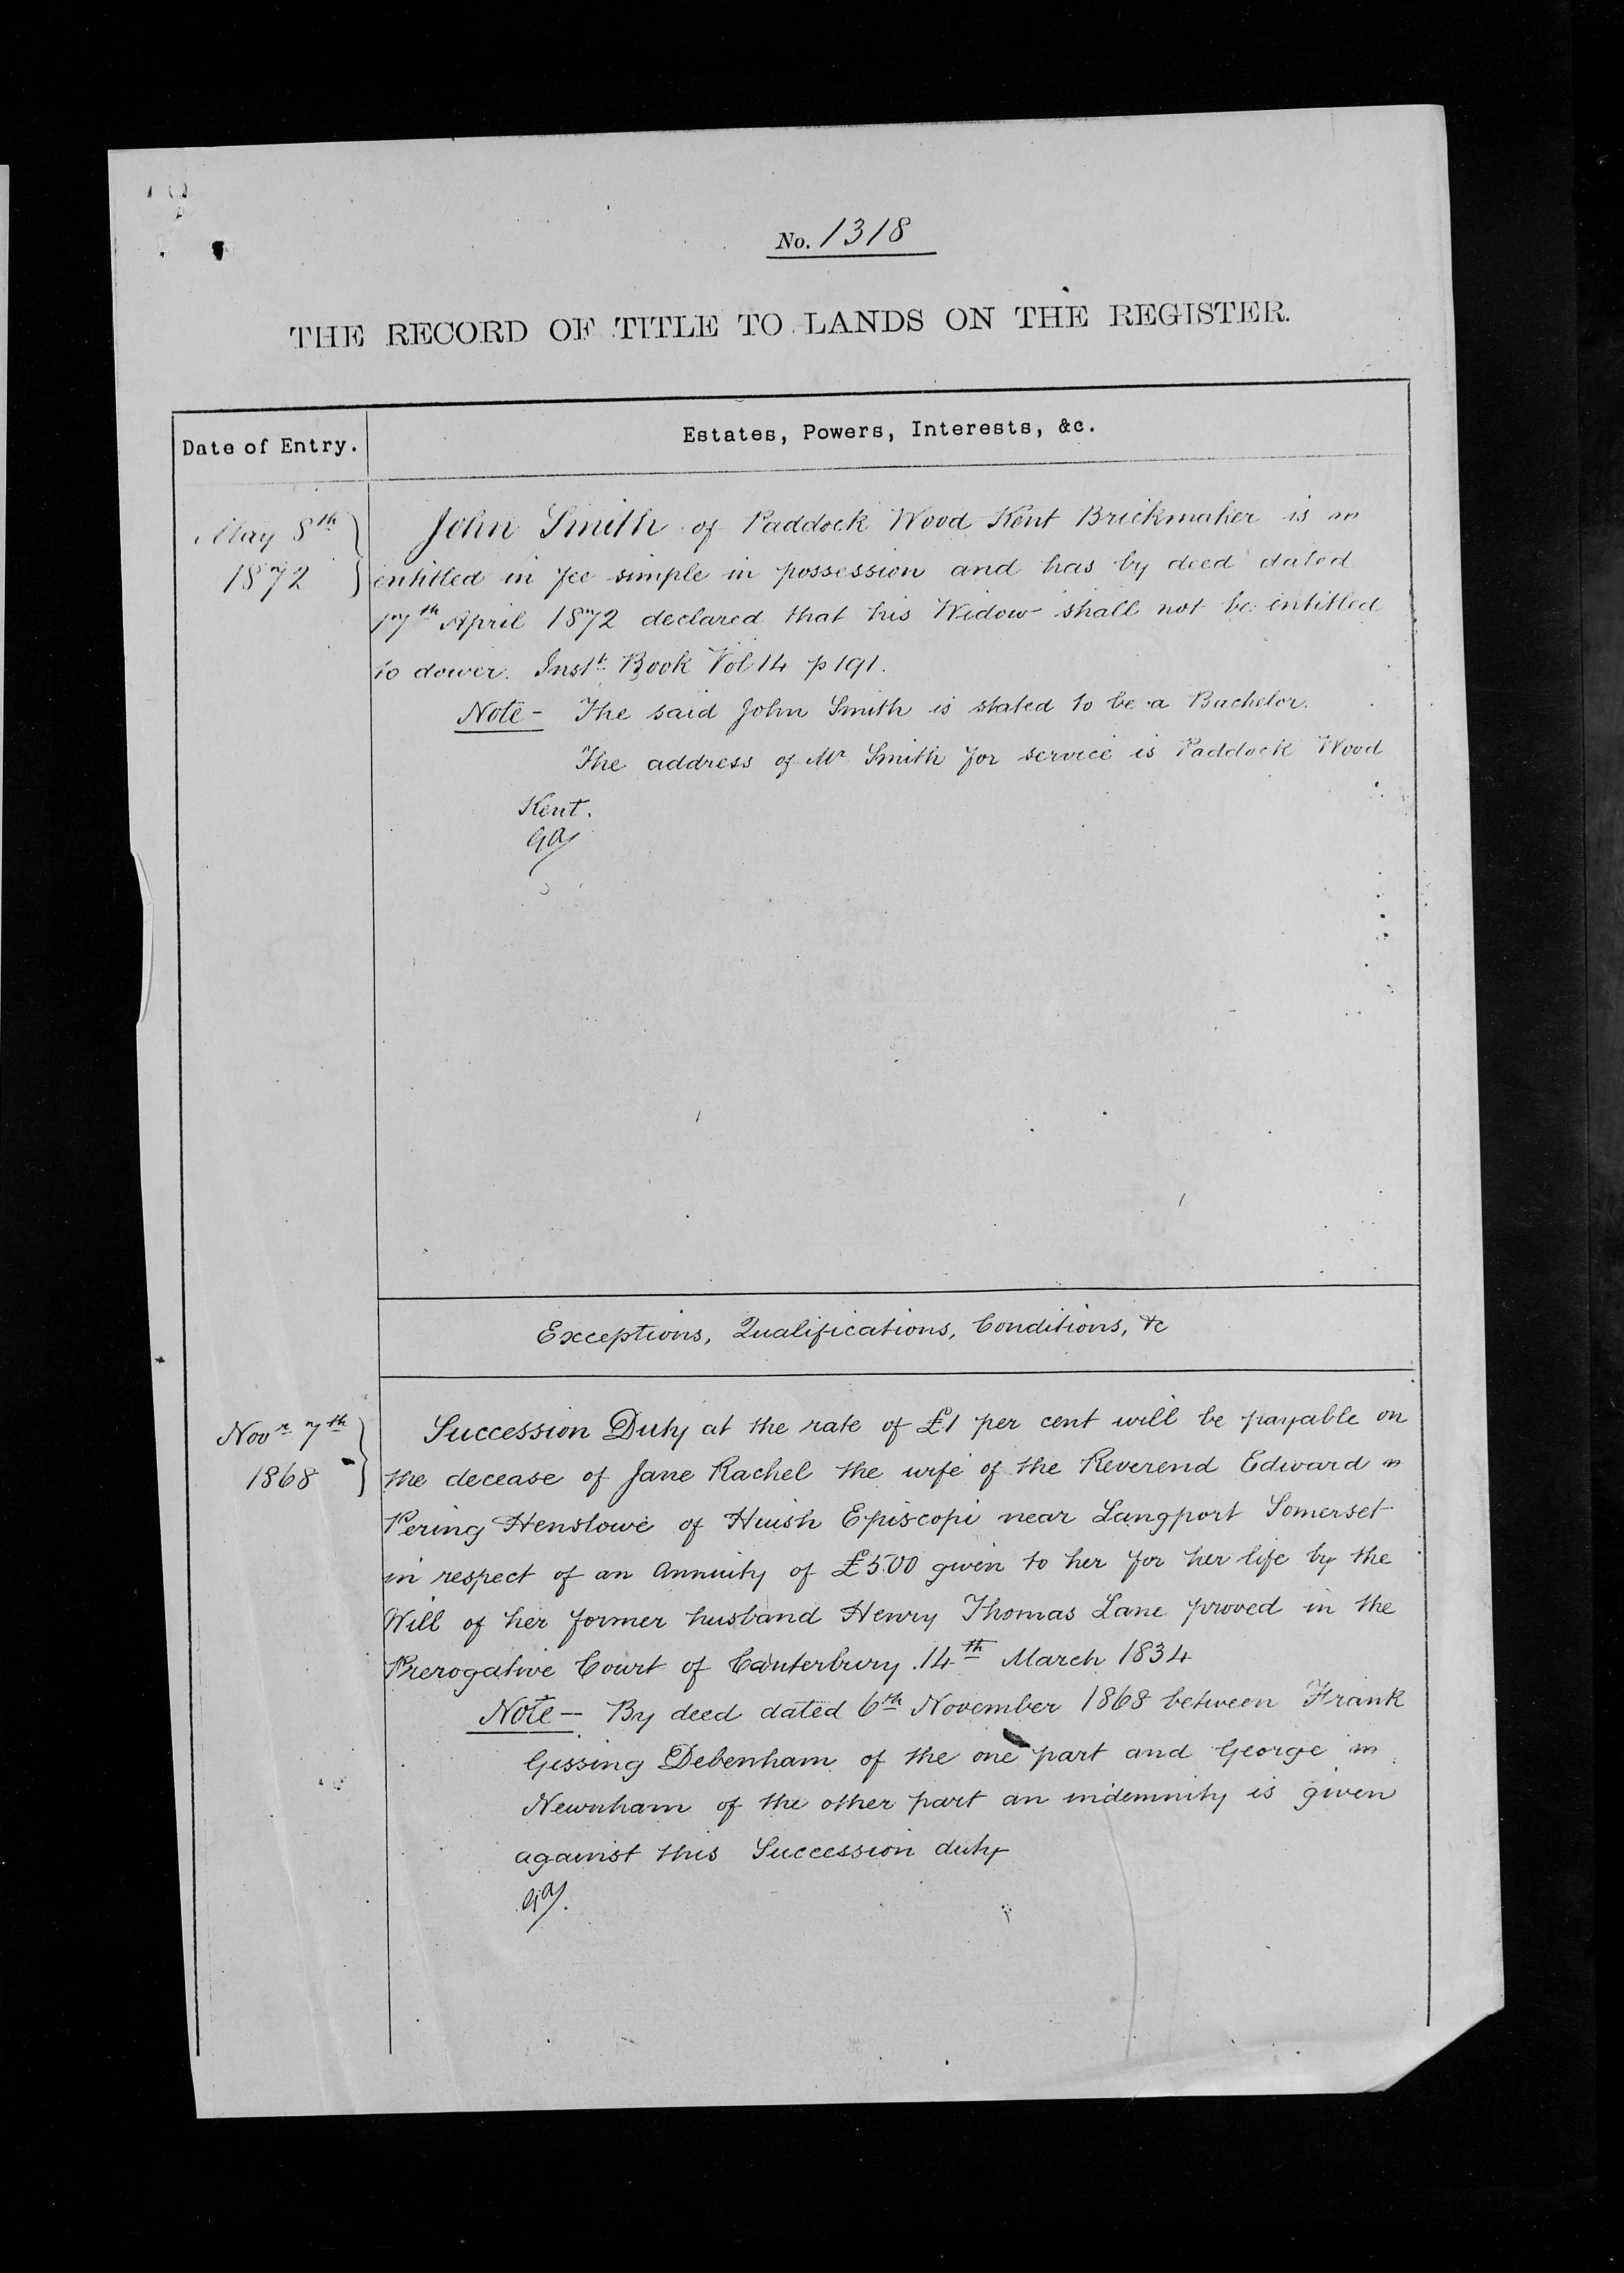 No. 1318
THE RECORD OF TITLE TO LANDS ON THE REGISTER.
Date of Entry.
Estates, Powers, Interests, &c.
May 8th
1872
John Smith of Paddock Wood Kent Brickmaker is
entitled in fee simple in possession and has by deed dated
17th April 1872 declared that his Widow shall not be entitled
to dower. Instt Book Vol 14 p 191.
Note - The said John Smith is stated to be a Bachelor.
The address of Mr Smith for service is Paddock Wood
Kent.
Exceptions, Qualifications, Conditions, &c
Novr 7th
1868
Succession Duty at the rate of £1 per cent will be payable on
the decease of Jane Rachel the wife of the Reverend Edward
Pering Henslowe of Huish Episcopi near Langport Somerset
in respect of an Annuity of £500 given to her for her life by the
Will of her former husband Henry Thomas Lane proved in the
Prerogative Court of Canterbury 14th March 1834
Note - By deed dated 6th November 1868 between Frank
Gissing Debenham of the one part and George
Newnham of the other part an indemnity is given
against this Succession duty